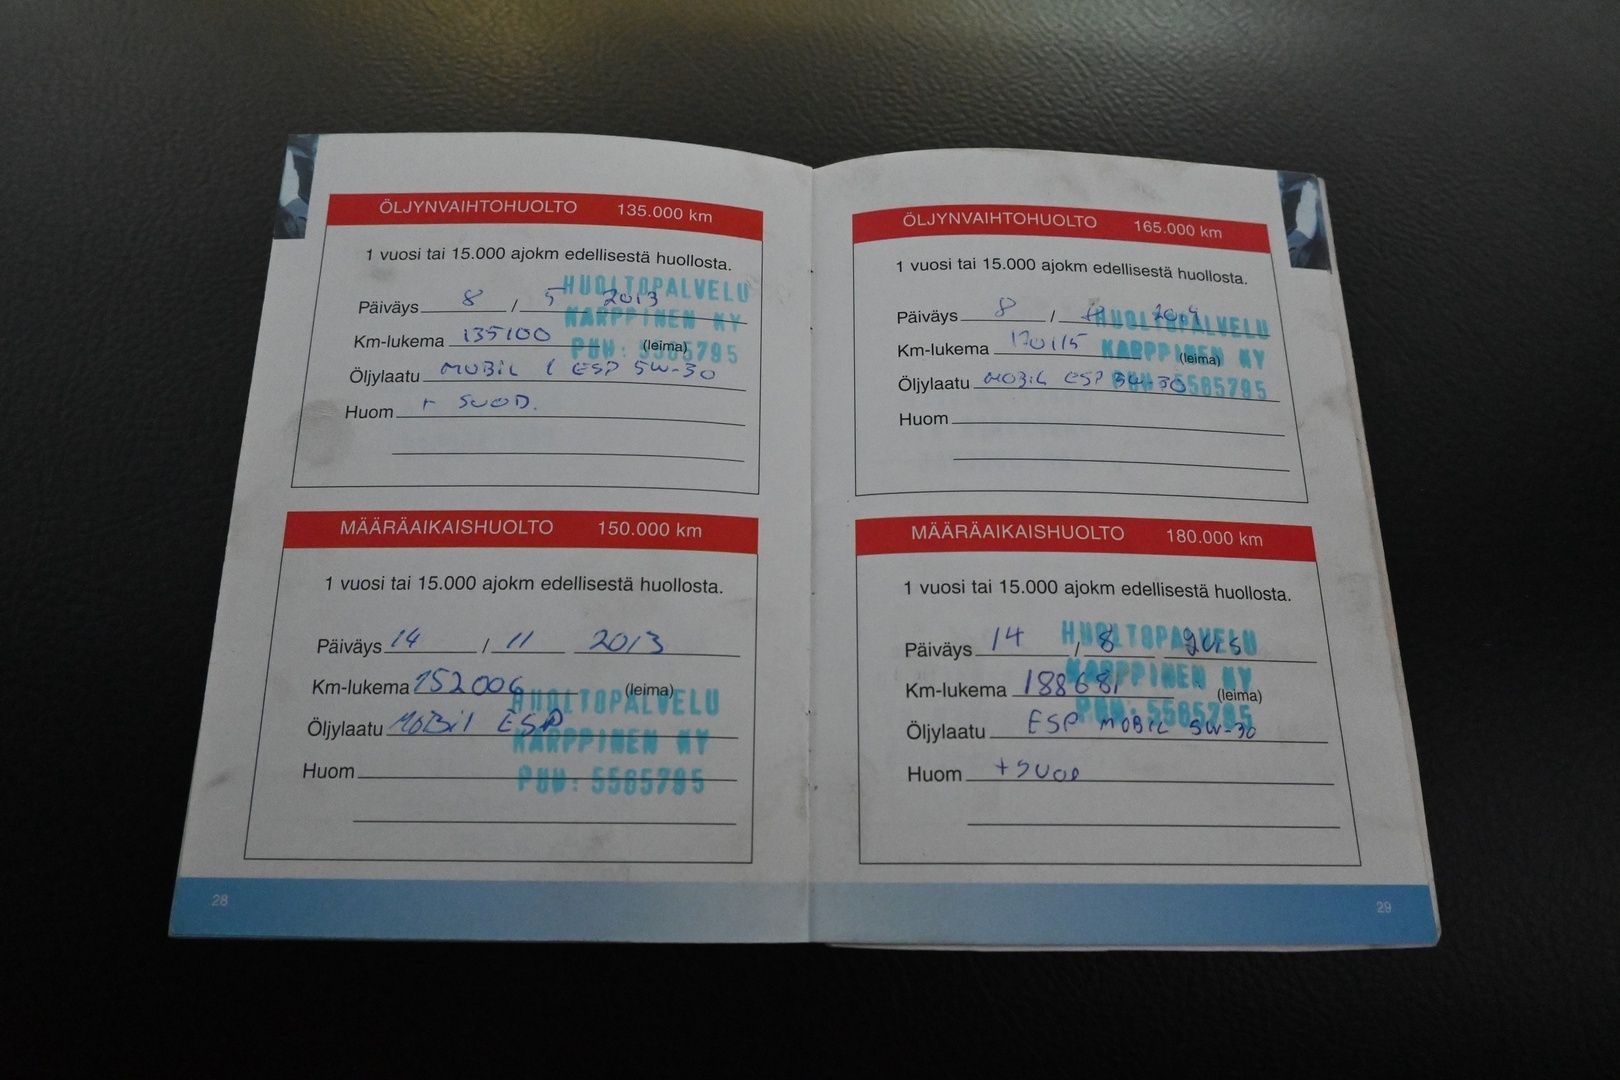 ÖLJYNVAIHTOHUOLTO 135.000 km
1 vuosi tai 15.000 ajokm edellisestä huollosta.
HUOLTOPALVELU
Päiväys 8 / 5 2013
KARPPINEN KY
Km-lukema 135100 (leima)
PUH: 5565795
Öljylaatu MOBIL 1 ESP 5W-30
Huom + SUOD.
MÄÄRÄAIKAISHUOLTO 150.000 km
1 vuosi tai 15.000 ajokm edellisestä huollosta.
Päiväys 14 / 11 2013
Km-lukema 152006 (leima)
HUOLTOPALVELU
Öljylaatu MOBIL ESP
KARPPINEN KY
Huom
PUH: 5565795
28
ÖLJYNVAIHTOHUOLTO 165.000 km
1 vuosi tai 15.000 ajokm edellisestä huollosta.
Päiväys 8 / 2014
HUOLTOPALVELU
Km-lukema 170115 (leima)
KARPPINEN KY
Öljylaatu MOBIL ESP 5W-30
PUH: 5565795
Huom
MÄÄRÄAIKAISHUOLTO 180.000 km
1 vuosi tai 15.000 ajokm edellisestä huollosta.
HUOLTOPALVELU
Päiväys 14 / 8 2015
KARPPINEN KY
Km-lukema 188681 (leima)
PUH: 5565795
Öljylaatu ESP MOBIL 5W-30
Huom + SUOD
29